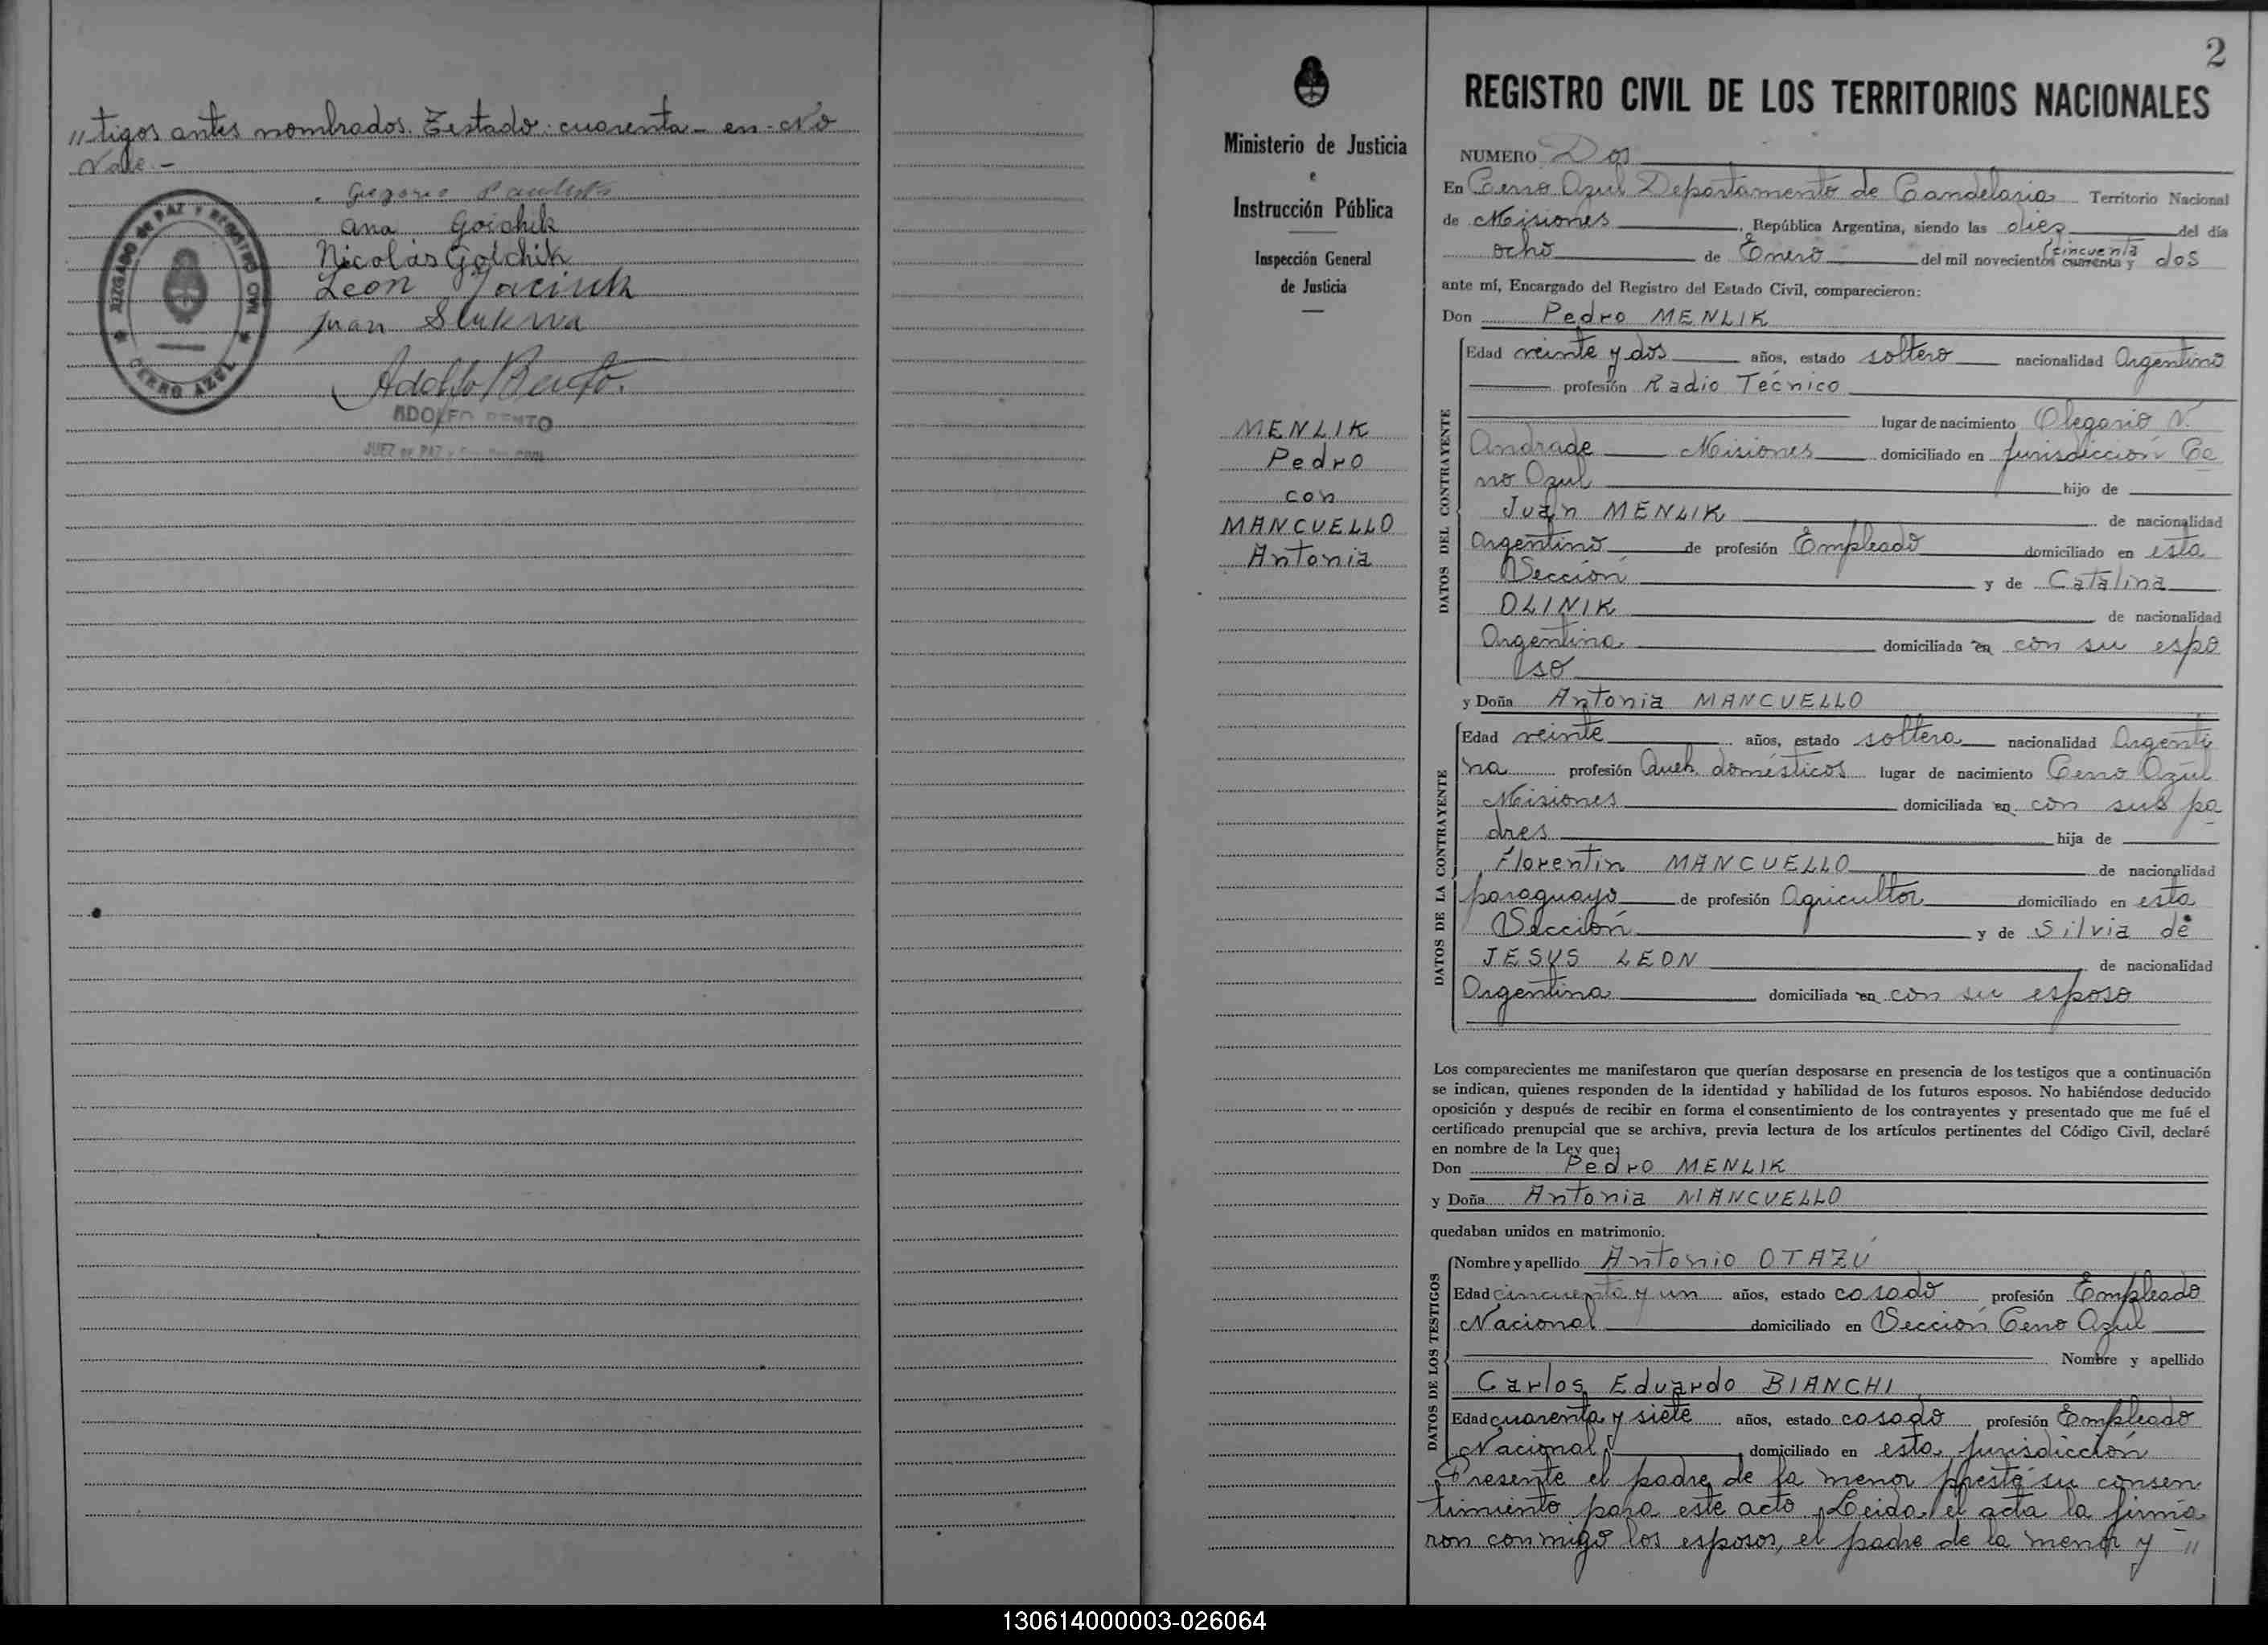 "tigos antes nombrados. Testado: cuarenta - en - No
Vale.-
Gregorio
Ana Goichik
Nicolás Golchik
Leon Jaciuk
Juan
JUZGADO de PAZ Y REGISTRO CIVIL
CERRO AZUL
Adolfo Bento
ADOLFO BENTO
JUEZ DE PAZ
Ministerio de Justicia
e
Instrucción Pública
Inspección General
de Justicia
MENLIK
Pedro
con
MANCUELLO
Antonia
2
REGISTRO CIVIL DE LOS TERRITORIOS NACIONALES
NUMERO Dos
En Cerro Azul Departamento de Candelaria Territorio Nacional
de Misiones, República Argentina, siendo las diez del día
ocho de Enero del mil novecientos cuarenta y (cincuenta dos
ante mí, Encargado del Registro del Estado Civil, comparecieron:
Don Pedro MENLIK
DATOS DEL CONTRAYENTE
Edad veinte y dos años, estado soltero nacionalidad Argentino
profesión Radio Técnico
lugar de nacimiento Olegario V.
Andrade Misiones domiciliado en jurisdicción Ce
rro Azul hijo de
Juan MENLIK de nacionalidad
Argentino de profesión Empleado domiciliado en esta
Sección y de Catalina
OLINIK de nacionalidad
Argentina domiciliada en con su espo
so
y Doña Antonia MANCUELLO
DATOS DE LA CONTRAYENTE
Edad veinte años, estado soltera nacionalidad Argenti
na profesión Queh. domésticos lugar de nacimiento Cerro Azul
Misiones domiciliada en con sus pa
dres hija de
Florentín MANCUELLO de nacionalidad
paraguayo de profesión Agricultor domiciliado en esta
Sección y de Silvia de
JESUS LEON de nacionalidad
Argentina domiciliada en con su esposo
Los comparecientes me manifestaron que querían desposarse en presencia de los testigos que a continuación
se indican, quienes responden de la identidad y habilidad de los futuros esposos. No habiéndose deducido
oposición y después de recibir en forma el consentimiento de los contrayentes y presentado que me fué el
certificado prenupcial que se archiva, previa lectura de los artículos pertinentes del Código Civil, declaré
en nombre de la Ley que:
Don Pedro MENLIK
y Doña Antonia MANCUELLO
quedaban unidos en matrimonio.
DATOS DE LOS TESTIGOS
Nombre y apellido Antonio OTAZÚ
Edad cincuenta y un años, estado casado profesión Empleado
Nacional domiciliado en Sección Cerro Azul
Nombre y apellido
Carlos Eduardo BIANCHI
Edad cuarenta y siete años, estado casado profesión Empleado
Nacional domiciliado en esta jurisdicción
Presente el padre de la menor prestó su consen
timiento para este acto. Leida el acta la firma
ron conmigo los esposos, el padre de la menor y "
130614000003-026064